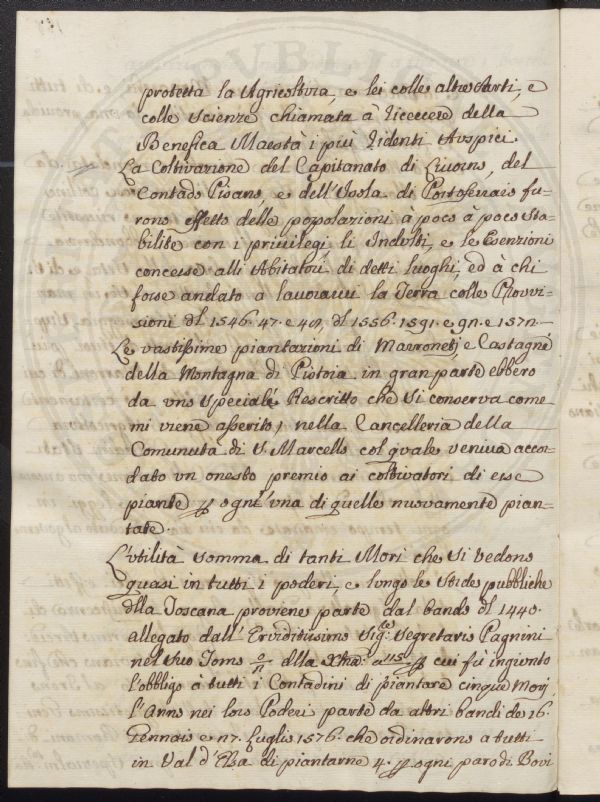 protetta la Agricoltura, e lei colle altre Arti, e
colle scienze chiamata à ricevere della
Benefica Maestà i più ridenti Auspici.
La Coltivazione del Capitanato di Livorno, del
Contado Pisano, e dell'Isola di Portoferraio fu=
rono effetto delle popolazioni a poco à poco sta=
bilite con i privilegj, li Indulti, e le Esenzioni
concesse alli Abitatori di detti luoghi, ed à chi
forse andato a lavorarvi la Terra colle Provvi=
sioni del 1546. 47. e del 1556. 1591. e
Le vastissime piantazioni di Marroneti, e Castagne
della Montagna di Pistoia in gran parte ebbero
da uno speciale Rescritto che si conserva come
mi viene asserito, nella Cancelleria della
Comunità di S. Marcello col quale veniva accor=
dato un onesto premio ai coltivatori di esse
piante p ogni una di quelle nuovamente pian=
tate.
L'utilità somma di tanti Mori che si vedono
quasi in tutti i poderi, e lungo le strade pubbliche
dlla Toscana proviene parte dal bando dl 1440.
allegato dall'Eruditissimo Sig.re Segretario Pagnini
nel suo Tomo dlla a 115. p cui fù ingiunto
l'obbligo à tutti i Contadini di piantare cinque Mori
l'Anno nei loro Poderi parte da altri bandi de 16.
Gennaio e 27. Luglio 1576. che ordinarono a tutti
in Val d'Elsa di piantarne 4. p ogni paro di Bovi